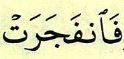 فَٱنفَجَرَتْ